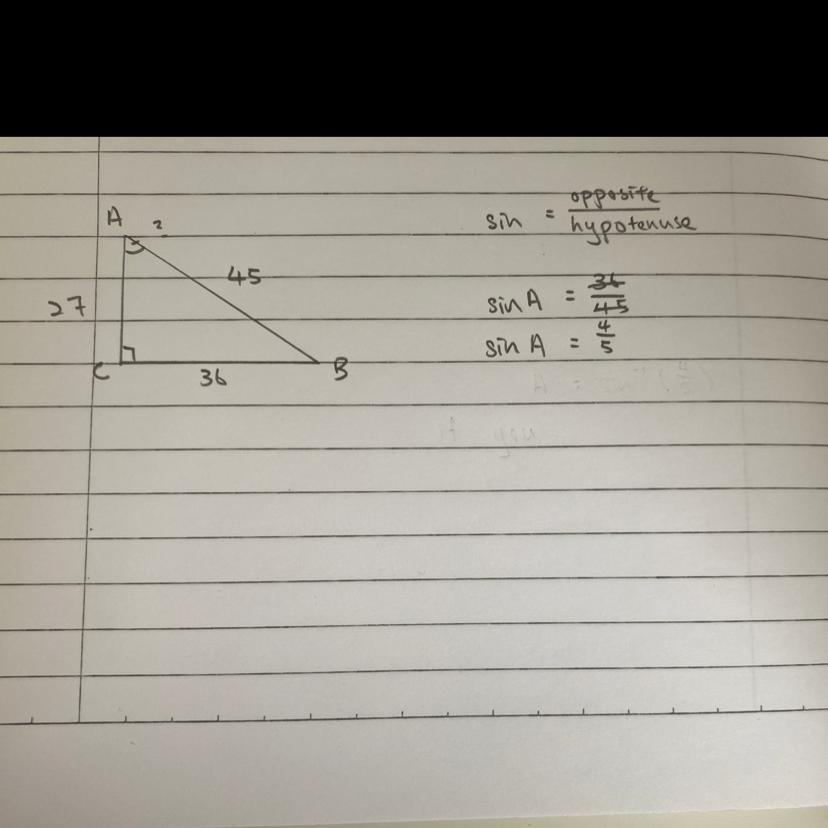 A ?
45
27
C 36 B
sin = opposite/hypotenuse
sin A = 36/45
sin A = 4/5